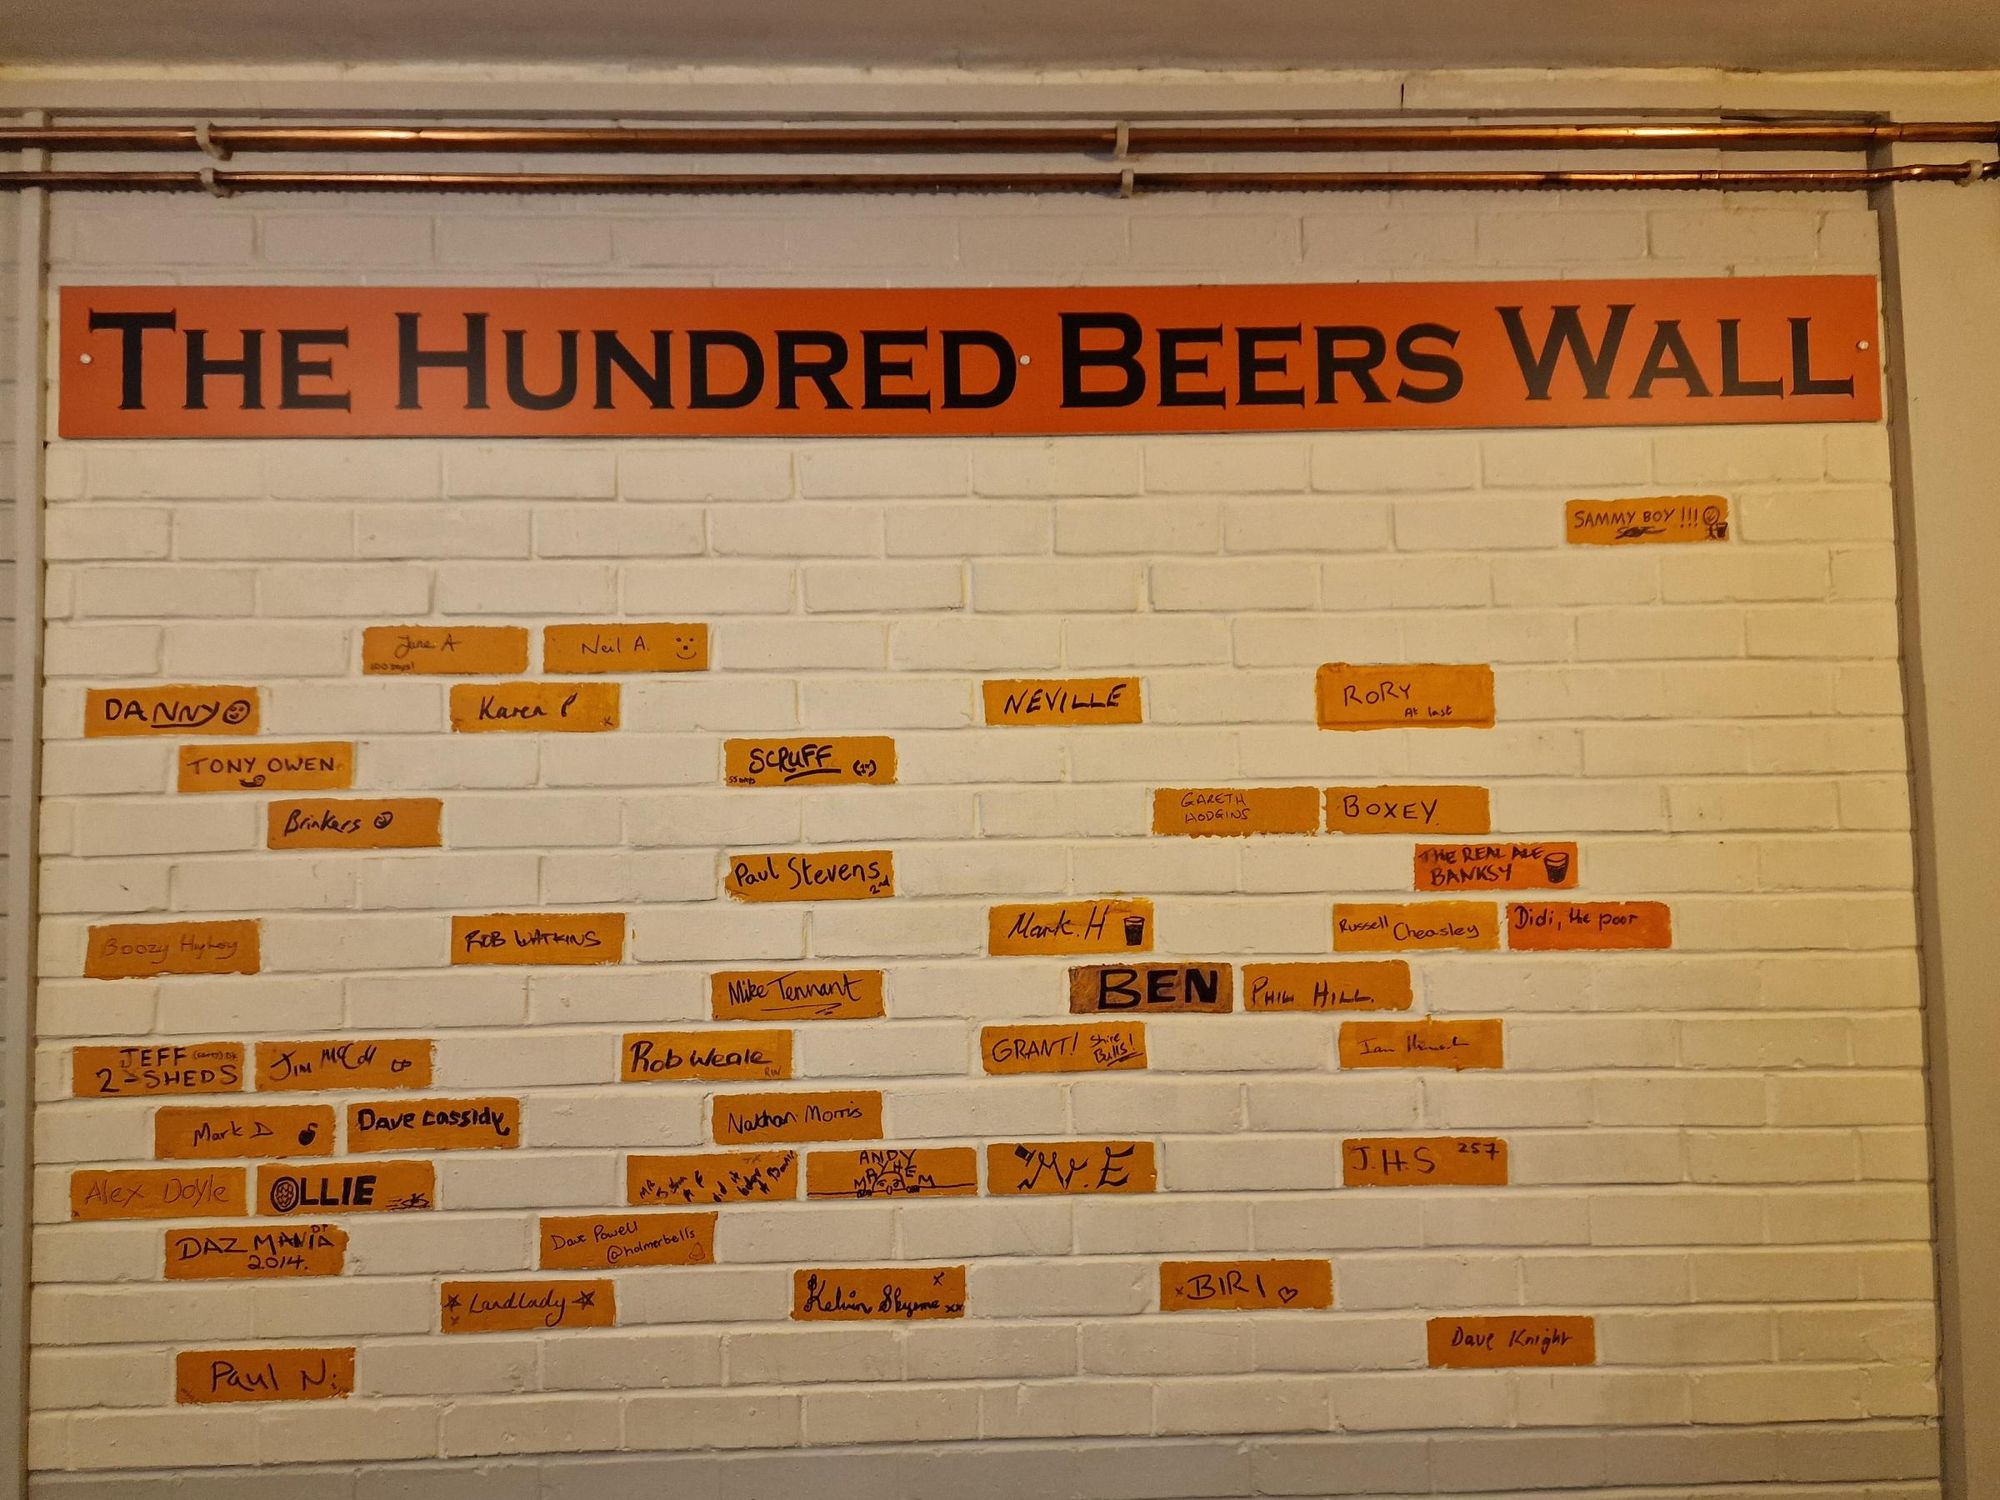 THE HUNDRED BEERS WALL
SAMMY BOY !!!
June A
100 Days!
Neil A.
DANNY
Karen P
x
NEVILLE
RORY
At last
TONY OWEN
SCRUFF
55 DAYS
Brinkers
GARETH
HODGINS
BOXEY
Paul Stevens
2nd
THE REAL ALE
BANKSY
Boozy
ROB WATKINS
Mark. H
Russell Cheasley
Didi, the poor
Mike Tennant
BEN
PHIL HILL.
JEFF
2-SHEDS
JIM
Rob Weale
RW
GRANT! Shire
Bulls!
Ian
Mark D
Dave Cassidy
Nathan Morris
Alex Doyle
OLLIE
MR
ANDY
MAYHEM
Mr. E
J.H.S 257
DAZ MANIA
2014.
Dave Powell
@holmerbells
Landlady
Kelvin Skyrme xx
x
x BIRI
Dave Knight
Paul N.